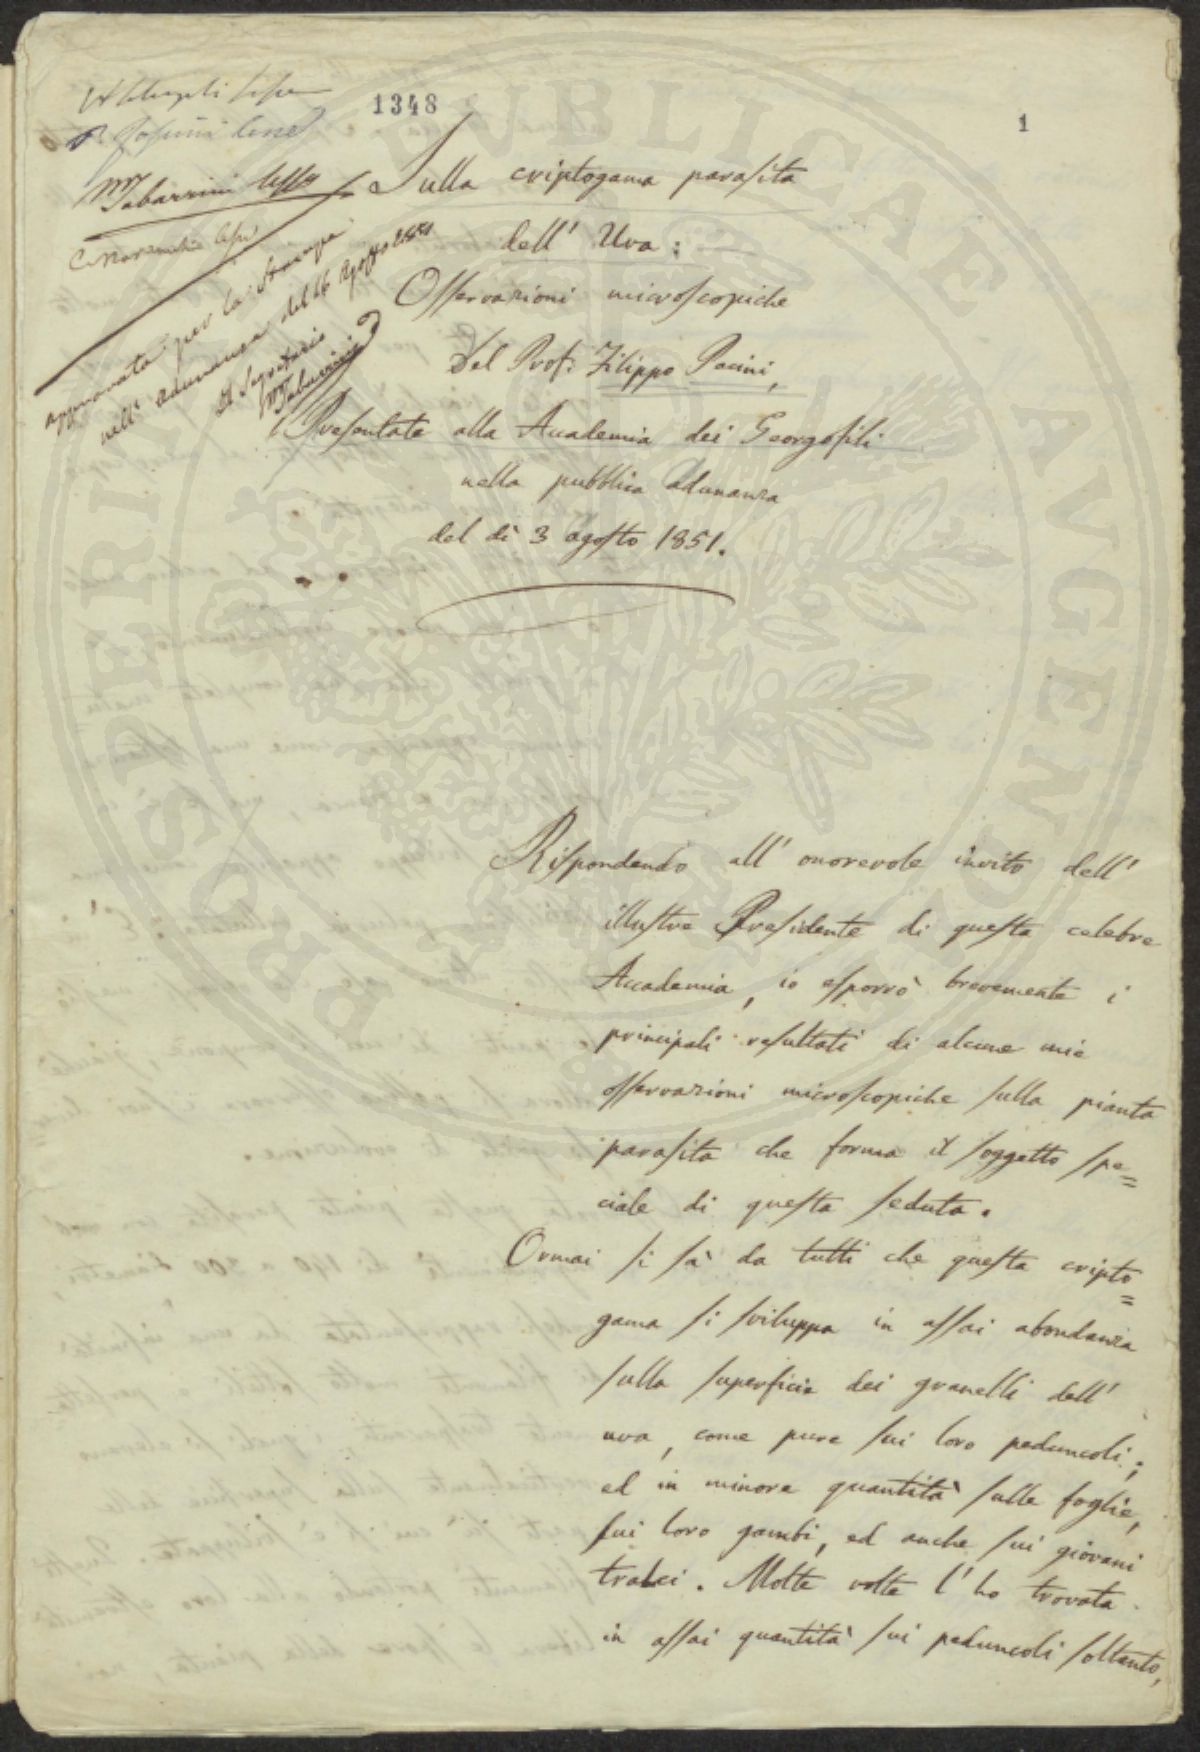 1348
1
Tabarrini
Sulla criptogama parasita
dell' Uva:
Osservazioni microscopiche
Del Prof: Filippo Pacini,
Presentate alla Accademia dei Georgofili
nella pubblica adunanza
del dì 3 agosto 1851.
approvata per la Stampa
nell' adunanza del 16 Agosto 1851
Il Segretario
Tabarrini
Rispondendo all' onorevole invito dell'
illustre Presidente di questa celebre
Accademia, io esporrò brevemente i
principali resultati di alcune mie
osservazioni microscopiche sulla pianta
parasita che forma il soggetto spe=
ciale di questa seduta.
Ormai si sà da tutti che questa cripto=
gama si sviluppa in assai abondanza
sulla superficie dei granelli dell'
uva, come pure sui loro peduncoli;
ed in minore quantità sulle foglie,
sui loro gambi, ed anche sui giovani
tralci. Molte volte l' ho trovata
in assai quantità sui peduncoli soltanto,
PROSPERITATI PUBLICAE AVGENDAE